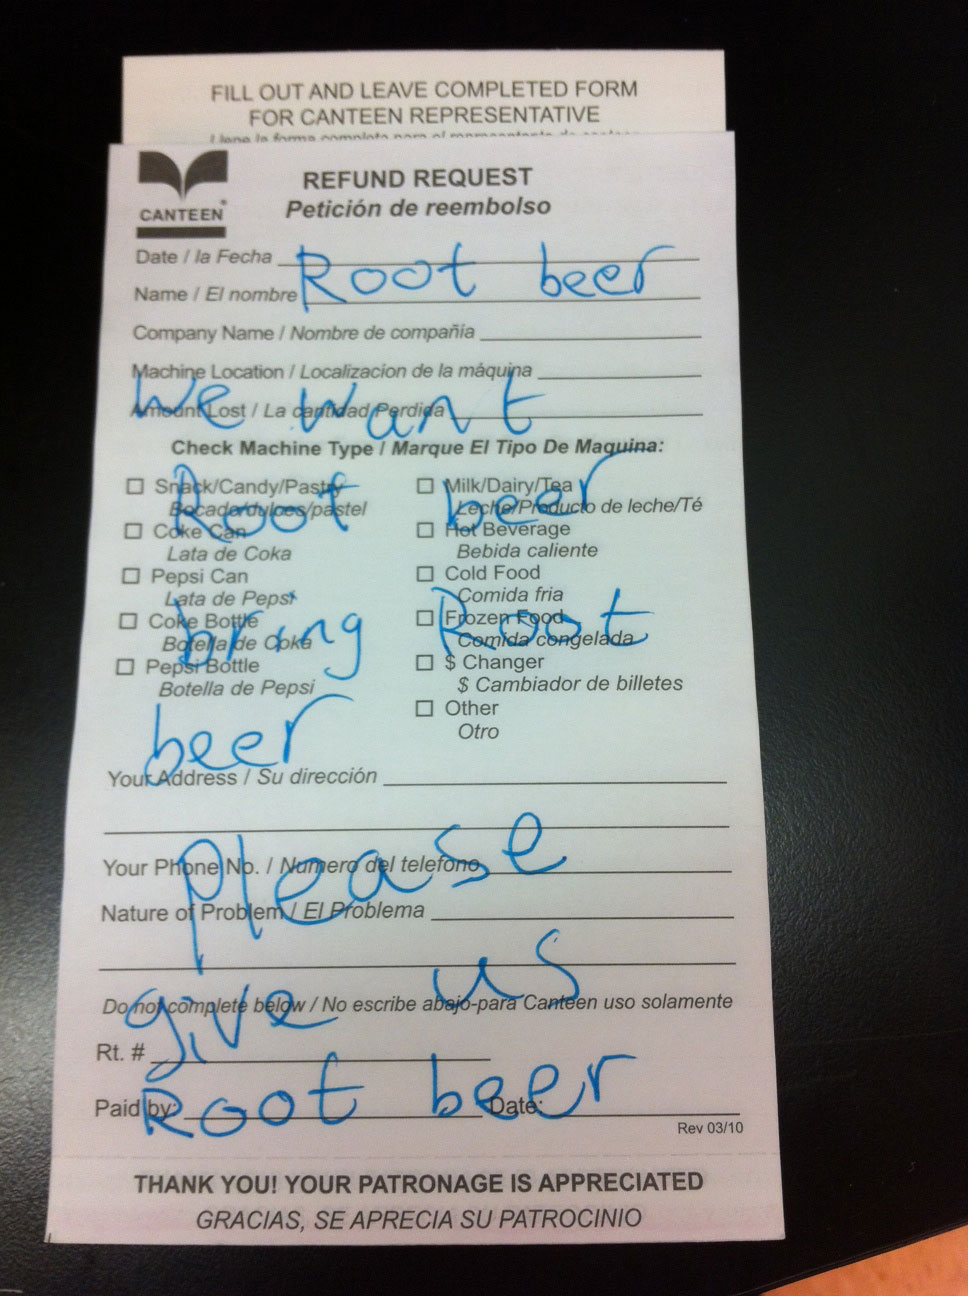 FILL OUT AND LEAVE COMPLETED FORM
FOR CANTEEN REPRESENTATIVE
CANTEEN®
REFUND REQUEST
Petición de reembolso
Date / la Fecha
Root beer
Name / El nombre
Company Name / Nombre de compañía
Machine Location / Localizacion de la máquina
We want
Amount Lost / La cantidad Perdida
Check Machine Type / Marque El Tipo De Maquina:
Root beer
Snack/Candy/Pastry
Bocado/dulces/pastel
Coke Can
Lata de Coka
Pepsi Can
Lata de Pepsi
Coke Bottle
Botella de Coka
Pepsi Bottle
Botella de Pepsi
Milk/Dairy/Tea
Leche/Producto de leche/Té
Hot Beverage
Bebida caliente
Cold Food
Comida fria
Frozen Food
Comida congelada
$ Changer
$ Cambiador de billetes
Other
Otro
bring Root
beer
Your Address / Su dirección
please
Your Phone No. / Numero del telefono
Nature of Problem / El Problema
give us
Do not complete below / No escribe abajo-para Canteen uso solamente
Rt. #
Root beer
Paid by: Date:
Rev 03/10
THANK YOU! YOUR PATRONAGE IS APPRECIATED
GRACIAS, SE APRECIA SU PATROCINIO